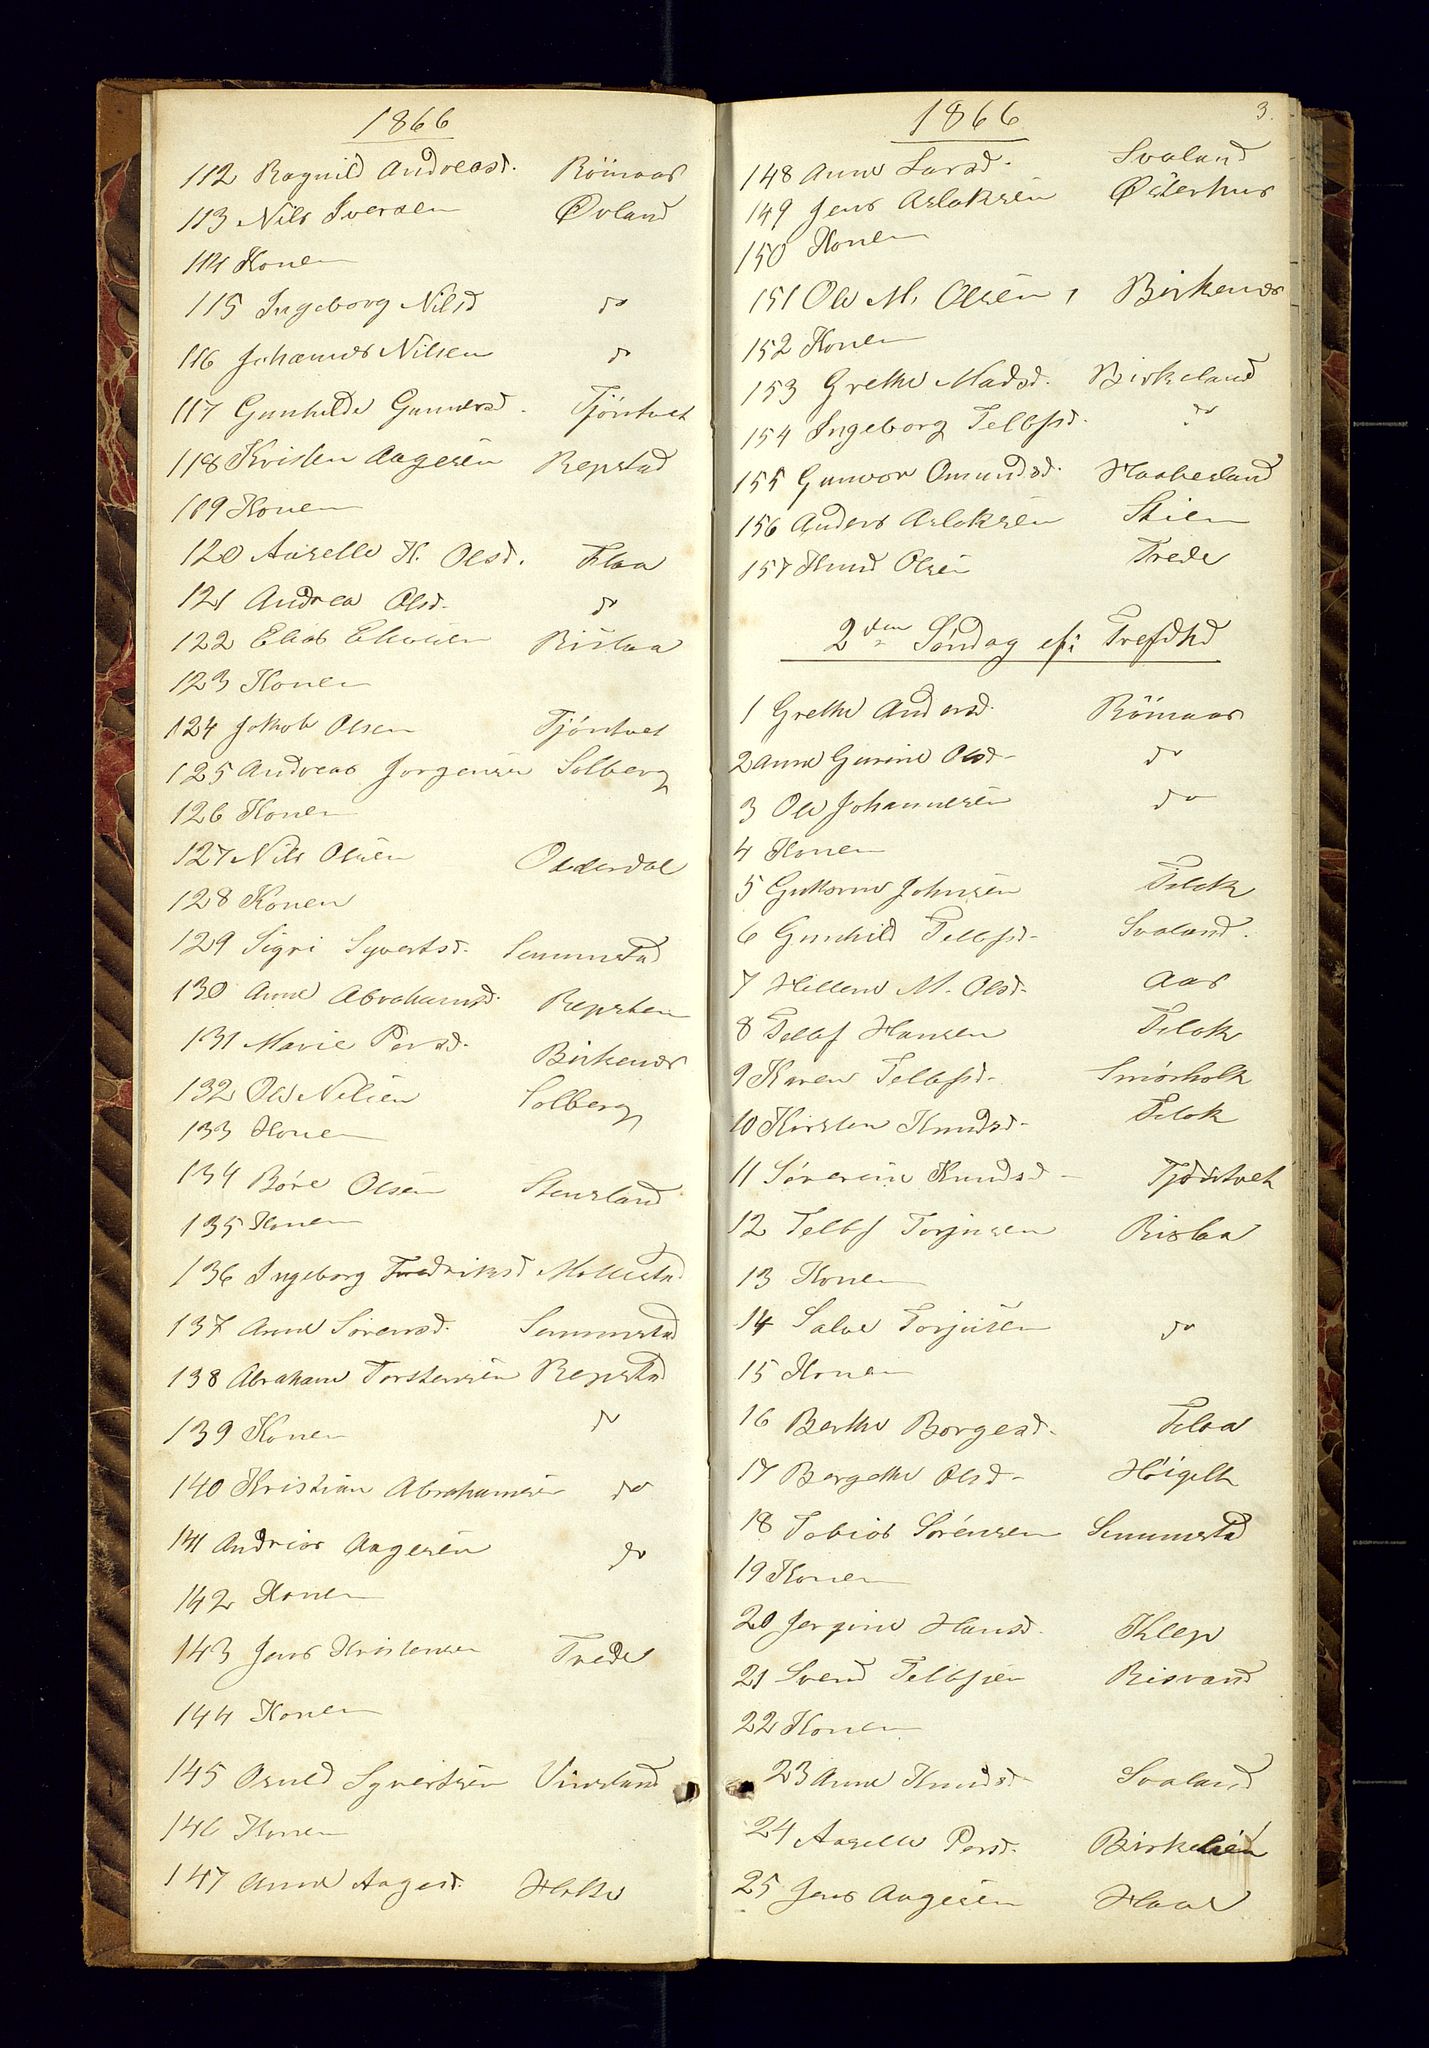 1866
112 Ragnild Andreasd. Römaas
113 Nils Iversen Øvland
114 Konen
115 Ingeborg Nilsd do
116 Johannes Nilsen do
117 Gunhilde Gunnersd. Tjöntvet
118 Kristen Aagesen Repstad
119 Konen
120 Aaselle K. Olsd. Flaa
121 Andrea Olsd. do
122 Elias Eliasen Rislaa
123 Konen
124 Jakob Olsen Tjöntvet
125 Andreas Jorgensen Solberg
126 Konen
127 Nils Olsen Oddersdal
128 Konen
129 Sigri Syvertsd. Senumstad
130 Anne Abrahamsd. Repsten
131 Marie Persd. Birkenes
132 Ole Nilsen Solberg
133 Konen
134 Böre Olsen Stensland
135 Konen
136 Ingeborg Fredriksd Mollestad
137 Anne Sörensd. Senumstad
138 Abraham Torstensen Repstad
139 Konen do
140 Kristian Abrahamsen do
141 Andrias Aagesen do
142 Konen
143 Jens Kristensen Trede
144 Konen
145 Osuld Syvertsen Vinsland
146 Konen
147 Anne Aagesd. Holte
1866 3.
148 Anne Larsd. Svaland
149 Jens Aslaksen Østerhus
150 Konen
151 Ole M. Olsen, Birkenes
152 Konen
153 Grethe Madsd. Birkeland
154 Ingeborg Tellefsd. do
155 Gunvor Omundsd. Haabesland
156 Anders Aslaksen Stien
157 Knud Olsen Trede
2den Søndag eft: Trefdhd
1 Grethe Andersd. Römaas
2 Anne Gurine Olsd. do
3 Ole Johannesen do
4 Konen
5 Guttorm Johnsen Flak
6 Gunhild Tellefsd. Svaland.
7 Hellene M. Olsd. Aas
8 Tellef Hansen Flak
9 Karen Tellefsd. Smörholt
10 Kirsten Knudsd. Flak
11 Sörerine Knudsd. Tjöstvet
12 Tellef Torjusen Rislaa
13 Konen
14 Salve Torjusen do
15 Konen
16 Berthe Borgesd. Flaa
17 Bergethe Olsd. Höigilt
18 Tobias Sörensen Senumstad
19 Konen
20 Jorgine Hansd. Klep
21 Svend Tellefsen Risvand
22 Konen
23 Anne Knudsd. Svaland
24 Aaselle Persd. Birkelien
25 Jens Aagesen Haae